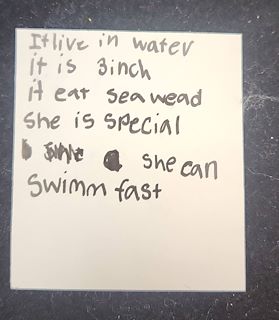 It live in water
it is 3inch
it eat sea wead
she is special
she can
swimm fast